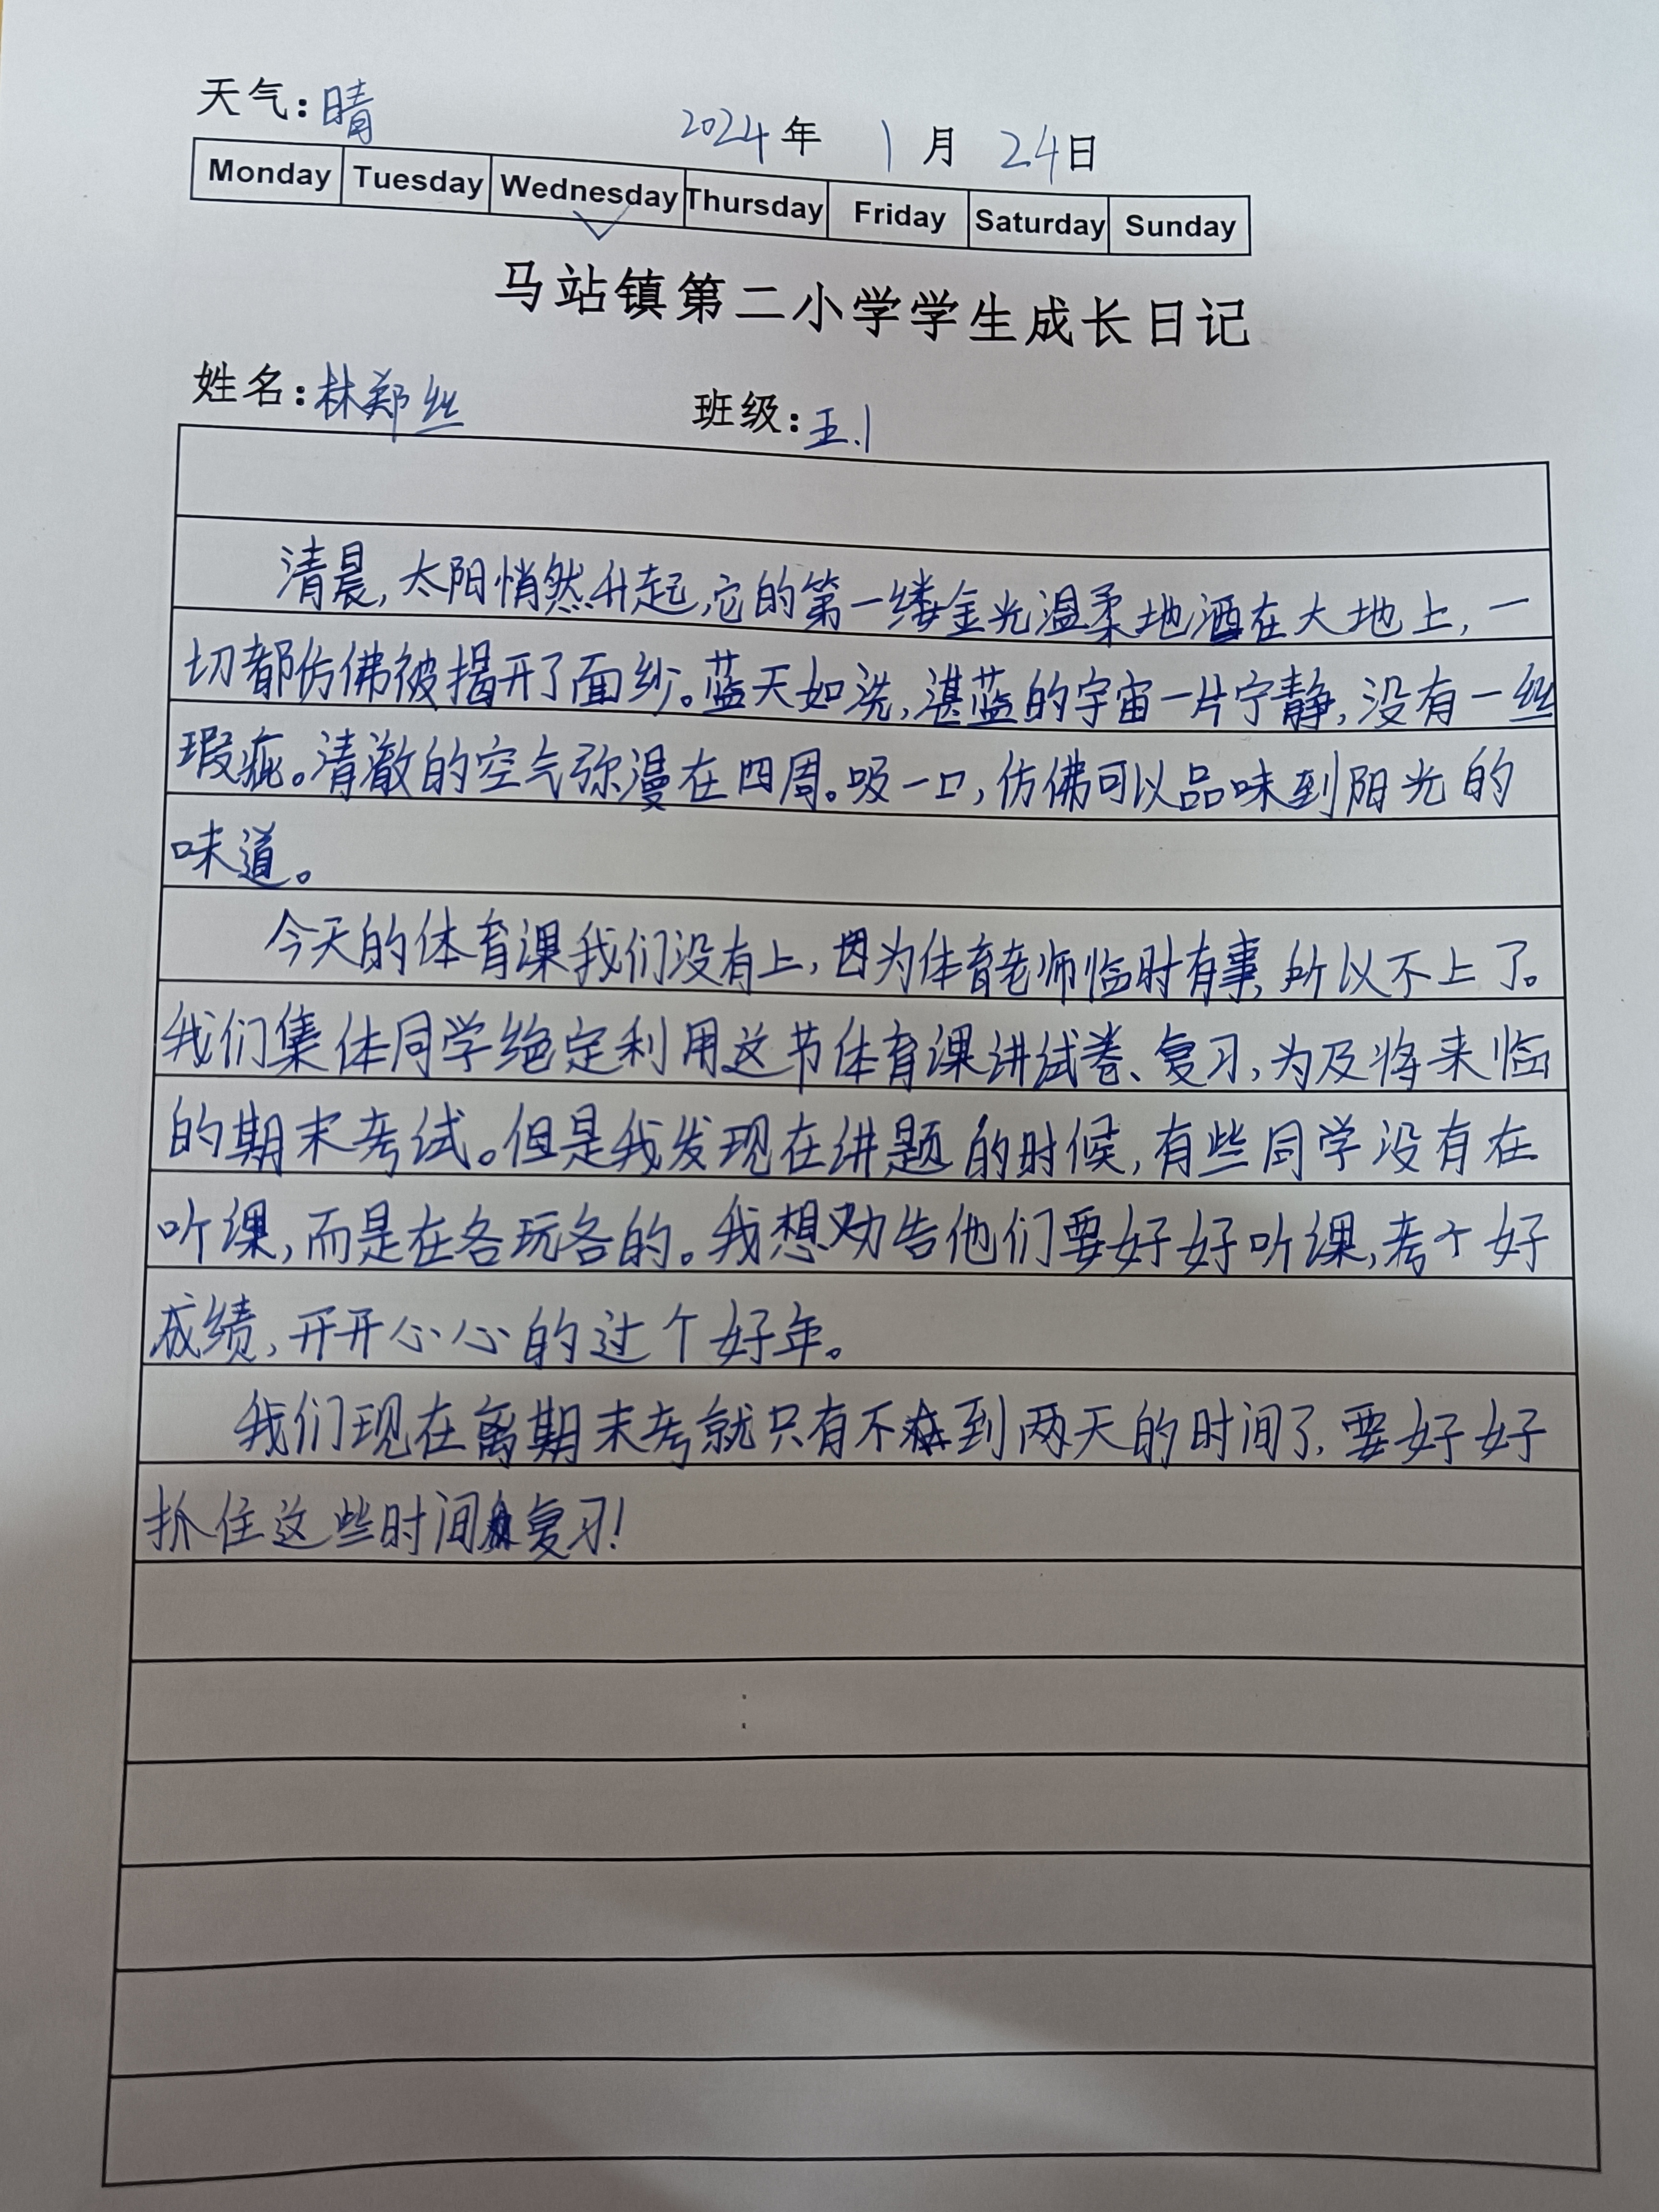 天气：晴
2024年 1月 24日
Monday Tuesday Wednesday Thursday Friday Saturday Sunday
马站镇第二小学学生成长日记
姓名：林郑丝 班级：五.1
清晨，太阳悄然升起，它的第一缕金光温柔地洒在大地上，一
切都仿佛被揭开了面纱。蓝天如洗，湛蓝的宇宙一片宁静，没有一丝
瑕疵。清澈的空气弥漫在四周。吸一口，仿佛可以品味到阳光的
味道。
今天的体育课我们没有上，因为体育老师临时有事，所以不上了。
我们集体同学绝定利用这节体育课讲试卷、复习，为及将来临
的期末考试。但是我发现在讲题的时候，有些同学没有在
听课，而是在各玩各的。我想劝告他们要好好听课，考个好
成绩，开开心心的过个好年。
我们现在离期末考就只有不到两天的时间了，要好好
抓住这些时间复习！